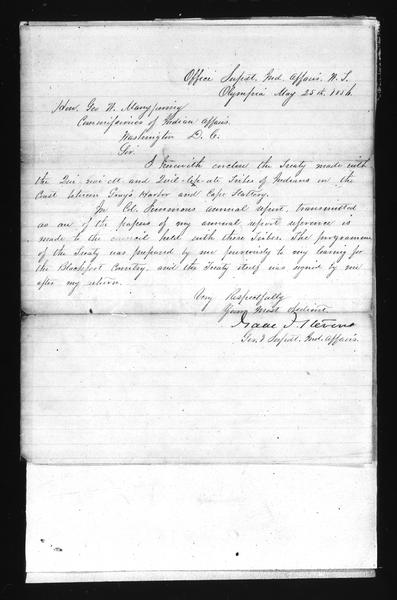 Office Supdt. Ind. Affairs. W. T.
Olympia May 25th. 1856.
Hon. Geo W. Manypenny
Commissioner of Indian Affairs.
Washington D. C.
Sir.
I herewith enclose the Treaty made with
the Qui-nai-elt and Quil-leh-ute Tribes of Indians on the
Coast between Gray's Harbor and Cape Flattery.
In Col. Simmons annual report, transmitted
as one of the papers of my annual report reference is
made to the council held with these Tribes. The programme
of the Treaty was prepared by me previously to my leaving for
the Blackfoot Country, and the Treaty itself was signed by me
after my return.
Very Respectfully
Your Most Obedient
Isaac I. Stevens
Gov. & Supdt. Ind. Affairs.